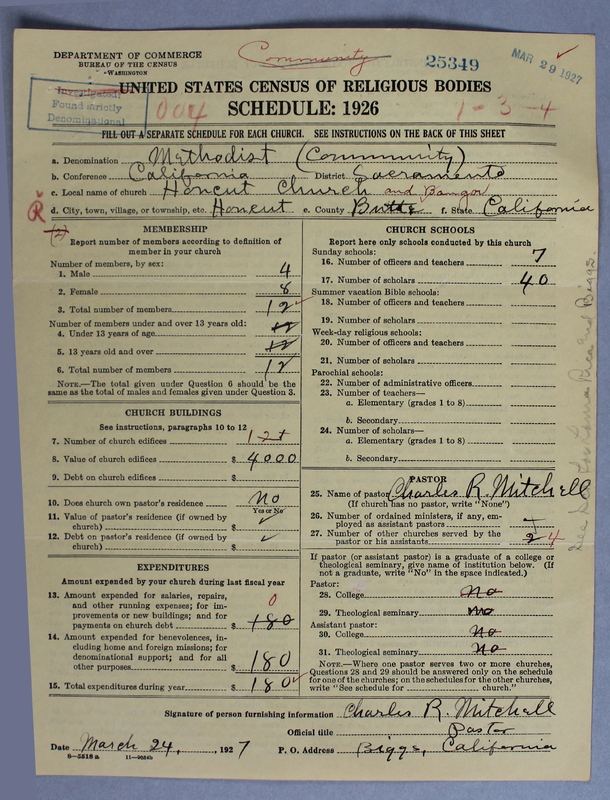 DEPARTMENT OF COMMERCE
BUREAU OF THE CENSUS
WASHINGTON
Community
25349
MAR 29 1927
Investigated
Found strictly
Denominational
004
UNITED STATES CENSUS OF RELIGIOUS BODIES
SCHEDULE: 1926
1-3-4
FILL OUT A SEPARATE SCHEDULE FOR EACH CHURCH. SEE INSTRUCTIONS ON THE BACK OF THIS SHEET
a. Denomination Methodist (Community)
b. Conference California District Sacramento
c. Local name of church Honcut Church and Bangor
R
d. City, town, village, or township, etc. Honcut e. County Butte f. State California
MEMBERSHIP
Report number of members according to definition of
member in your church
Number of members, by sex:
1. Male 4
2. Female 8
3. Total number of members 12
Number of members under and over 13 years old:
4. Under 13 years of age 12
5. 13 years old and over 12
6. Total number of members 12
NOTE.—The total given under Question 6 should be
the same as the total of males and females given under Question 3.
CHURCH BUILDINGS
See instructions, paragraphs 10 to 12
7. Number of church edifices 1
8. Value of church edifices $ 4000
9. Debt on church edifices $
10. Does church own pastor's residence No
Yes or No
11. Value of pastor's residence (if owned by
church) $ ✓
12. Debt on pastor's residence (if owned by
church) $ ✓
EXPENDITURES
Amount expended by your church during last fiscal year
13. Amount expended for salaries, repairs,
and other running expenses; for im-
provements or new buildings; and for
payments on church debt $ 180
0
14. Amount expended for benevolences, in-
cluding home and foreign missions; for
denominational support; and for all
other purposes $ 180
15. Total expenditures during year $ 180
CHURCH SCHOOLS
Report here only schools conducted by this church
Sunday schools:
16. Number of officers and teachers 7
17. Number of scholars 40
Summer vacation Bible schools:
18. Number of officers and teachers
19. Number of scholars
Week-day religious schools:
20. Number of officers and teachers
21. Number of scholars
Parochial schools:
22. Number of administrative officers
23. Number of teachers—
a. Elementary (grades 1 to 8)
b. Secondary
24. Number of scholars—
a. Elementary (grades 1 to 8)
b. Secondary
PASTOR
25. Name of pastor Charles R. Mitchell
(If church has no pastor, write "None")
26. Number of ordained ministers, if any, em-
ployed as assistant pastors
27. Number of other churches served by the
pastor or his assistants 2 4
If pastor (or assistant pastor) is a graduate of a college or
theological seminary, give name of institution below. (If
not a graduate, write "No" in the space indicated.)
Pastor:
28. College No
29. Theological seminary No
Assistant pastor:
30. College No
31. Theological seminary No
NOTE.—Where one pastor serves two or more churches,
Questions 28 and 29 should be answered only on the schedule
for one of the churches; on the schedules for the other churches,
write "See schedule for church."
Signature of person furnishing information Charles R. Mitchell
Official title Pastor
Date March 24, 1927 P. O. Address Biggs, California
8-5818 a